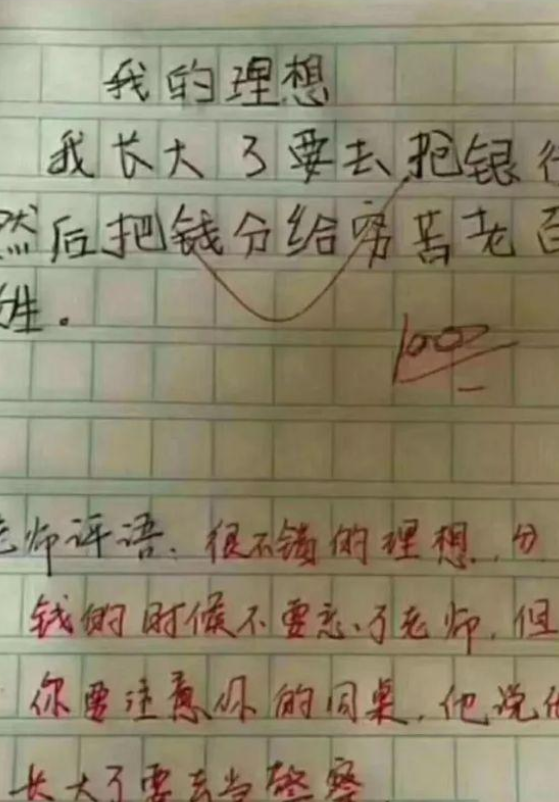 我的理想
我长大了要去抢银行
然后把钱分给穷苦老百
姓。
100
老师评语：很不错的理想，分
钱的时候不要忘了老师，但
你要注意你的同桌，他说他
长大了要去当警察